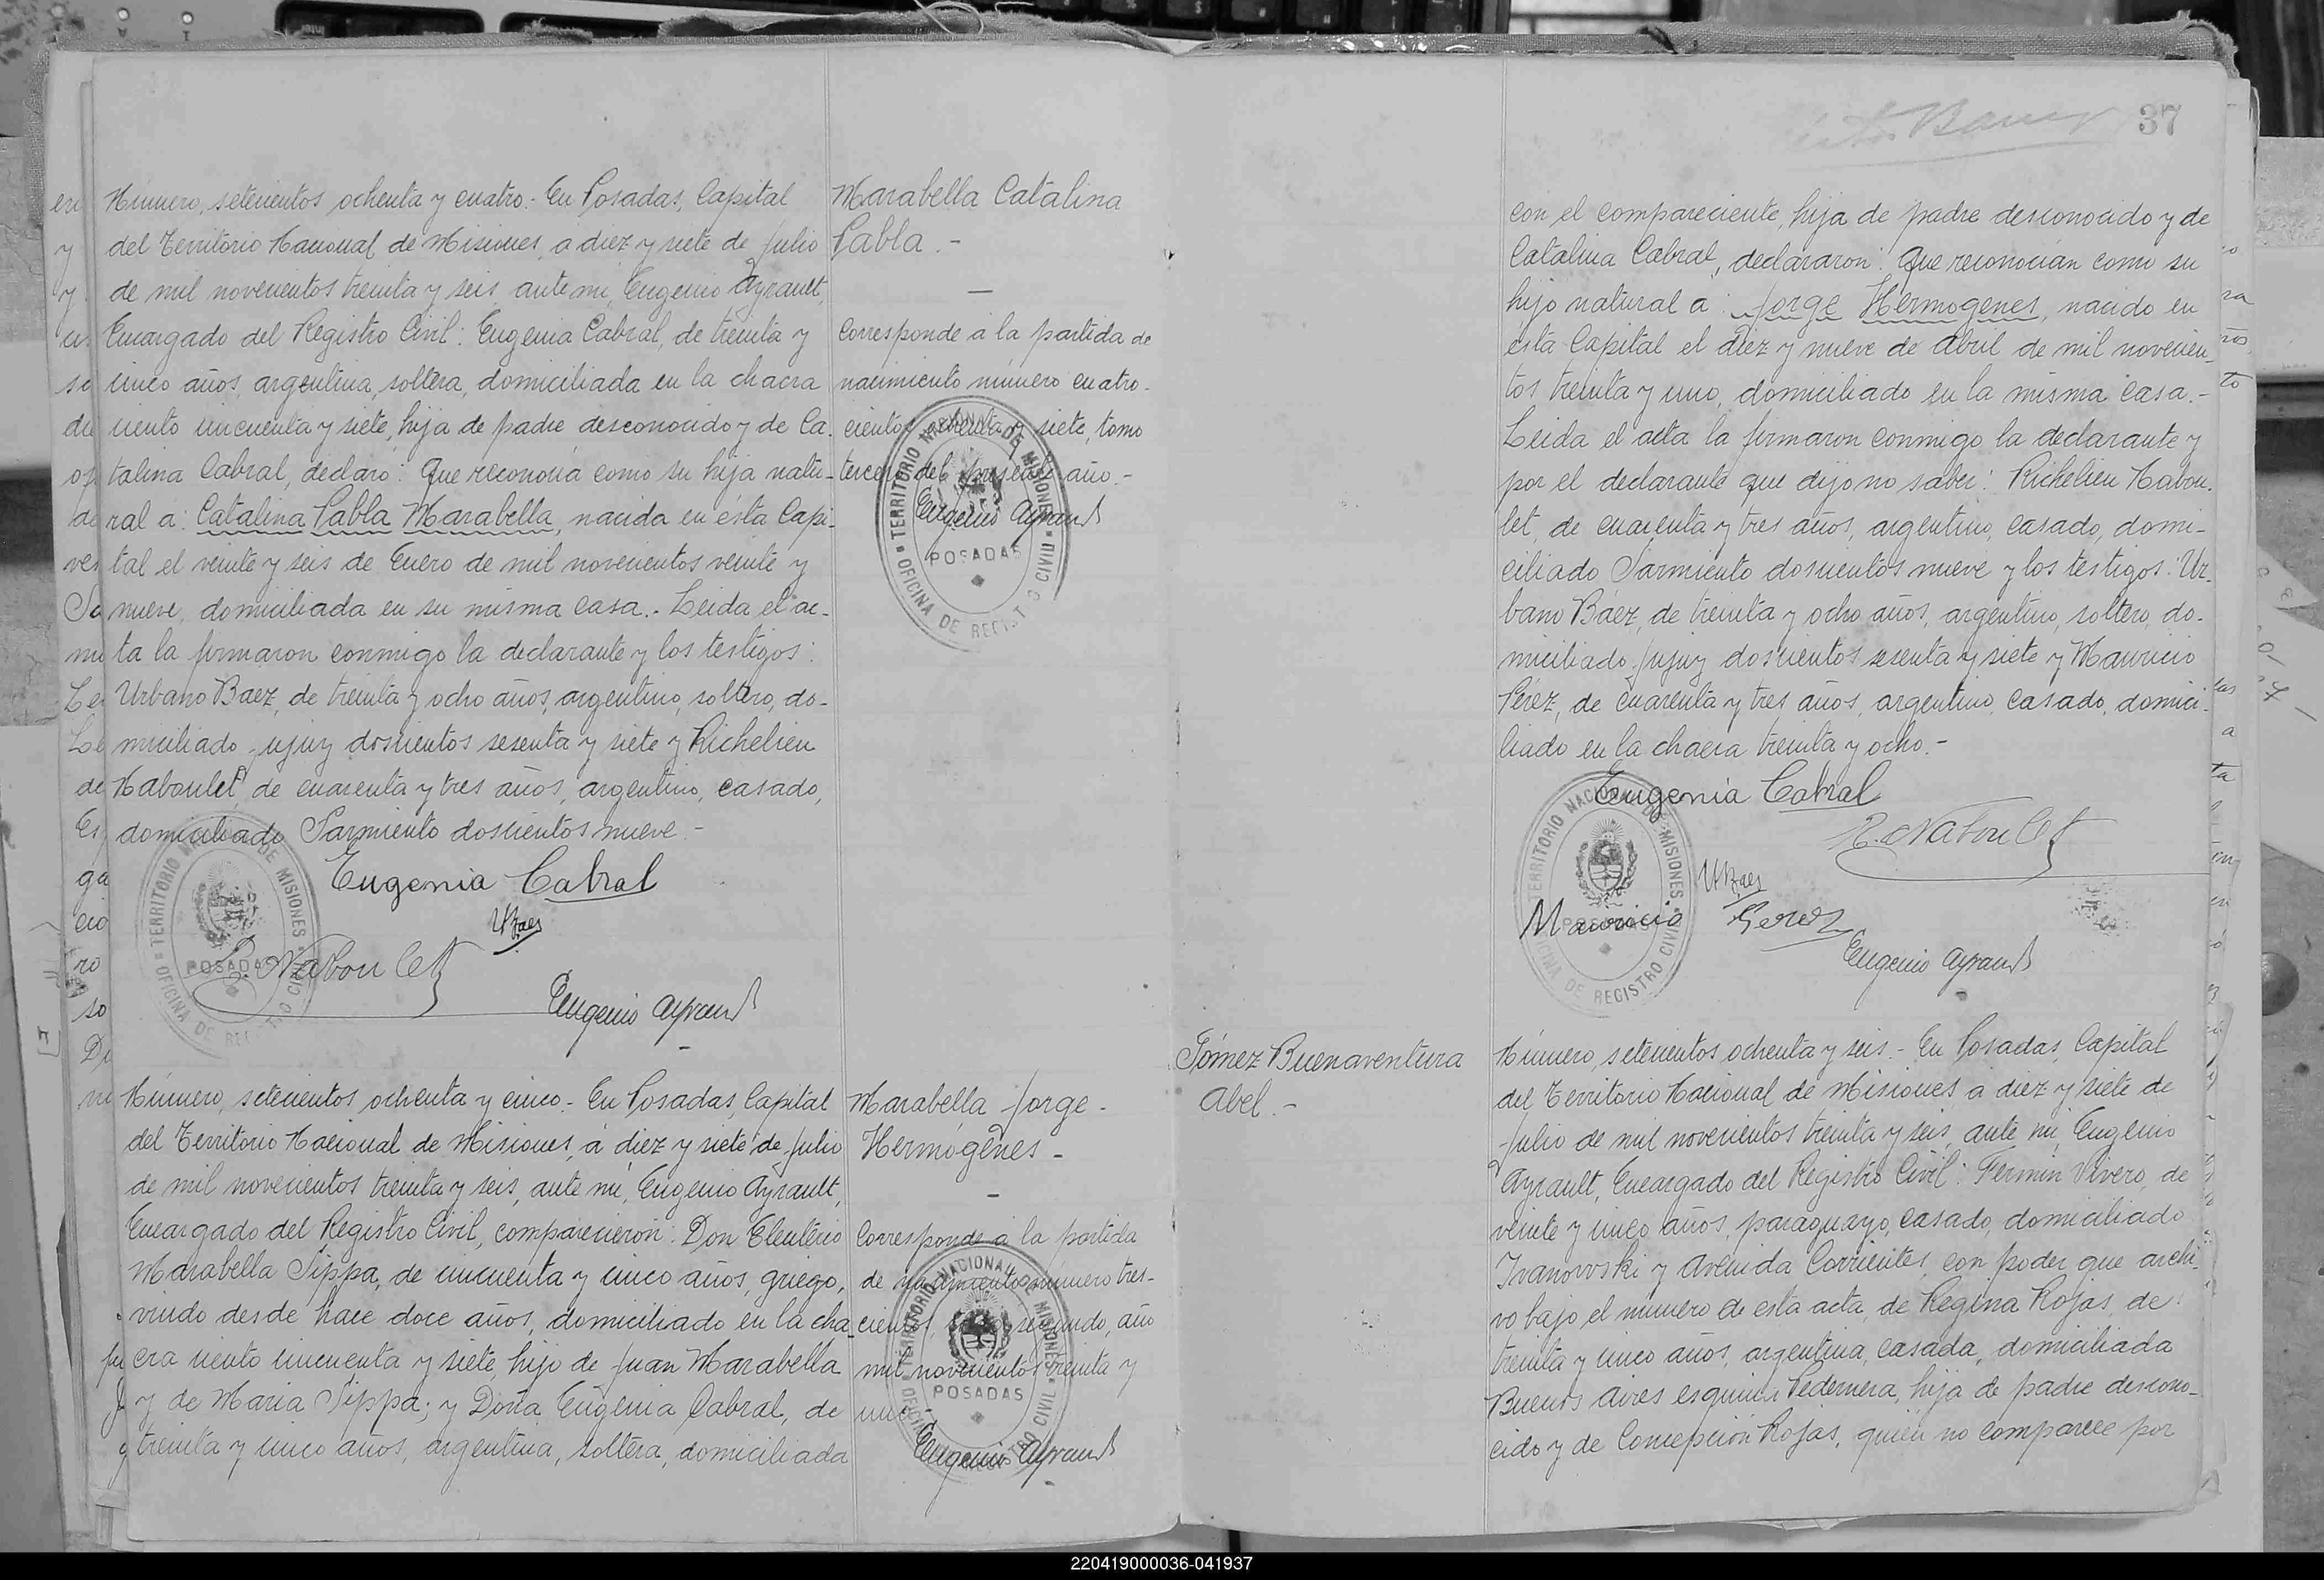 Número, setecientos ochenta y cuatro.- En Posadas, Capital
del Territorio Nacional de Misiones, a diez y siete de Julio
de mil novecientos treinta y seis, ante mí, Eugenio Ayrault,
Encargado del Registro Civil: Eugenia Cabral, de treinta y
cinco años, argentina, soltera, domiciliada en la chacra
ciento cincuenta y siete, hija de padre desconocido y de Ca-
talina Cabral, declaró: Que reconocía como su hija natu-
ral a: Catalina Pabla Marabella, nacida en ésta Capi-
tal el veinte y seis de Enero de mil novecientos veinte y
nueve, domiciliada en su misma casa.- Leida el ac-
ta la firmaron conmigo la declarante y los testigos:
Urbano Baez, de treinta y ocho años, argentino, soltero, do-
miciliado Jujuy doscientos sesenta y siete y Richelieu
Naboulet, de cuarenta y tres años, argentino, casado,
domiciliado Sarmiento doscientos nueve.-
Eugenia Cabral
UBaez
R. Naboulet
Eugenio Ayrault
TERRITORIO NACIONAL DE MISIONES
POSADAS
OFICINA DE REGISTRO CIVIL
Marabella Catalina
Pabla.-
Corresponde a la partida de
nacimiento número cuatro-
cientos ochenta y siete, tomo
tercero del presente año.-
Eugenio Ayrault
TERRITORIO NACIONAL DE MISIONES
POSADAS
OFICINA DE REGISTRO CIVIL
Número, setecientos ochenta y cinco.- En Posadas, Capital
del Territorio Nacional de Misiones, a diez y siete de Julio
de mil novecientos treinta y seis, ante mí, Eugenio Ayrault,
Encargado del Registro Civil, comparecieron: Don Eleuterio
Marabella Sippa, de cincuenta y cinco años, griego,
viudo desde hace doce años, domiciliado en la cha-
cra ciento cincuenta y siete, hijo de Juan Marabella
y de Maria Sippa; y Doña Eugenia Cabral, de
treinta y cinco años, argentina, soltera, domiciliada
Marabella Jorge-
Hermógenes-
Corresponde a la partida
de nacimiento número tres-
cientos, segundo, año
mil novecientos treinta y
uno
Eugenio Ayrault
TERRITORIO NACIONAL DE MISIONES
POSADAS
OFICINA DE REGISTRO CIVIL
37
con el compareciente, hija de padre desconocido y de
Catalina Cabral, declararon: Que reconocían como su
hijo natural a: Jorge Hermogenes, nacido en
ésta Capital el diez y nueve de abril de mil novecien-
tos treinta y uno, domiciliado en la misma casa.-
Leida el acta la firmaron conmigo la declarante y
por el declarante que dijo no saber: Richelieu Nabou-
let, de cuarenta y tres años, argentino, casado, domi-
ciliado Sarmiento doscientos nueve y los testigos: Ur-
bano Báez, de treinta y ocho años, argentino, soltero, do-
miciliado Jujuy doscientos sesenta y siete y Mauricio
Pérez, de cuarenta y tres años, argentino, casado, domici-
liado en la chacra treinta y ocho.-
Eugenia Cabral
R. Naboulet
UBaez
Mauricio Perez
Eugenio Ayrault
TERRITORIO NACIONAL DE MISIONES
POSADAS
OFICINA DE REGISTRO CIVIL
Gómez Buenaventura
Abel.-
Número, setecientos ochenta y seis.- En Posadas, Capital
del Territorio Nacional de Misiones, a diez y siete de
Julio de mil novecientos treinta y seis, ante mí, Eugenio
Ayrault, Encargado del Registro Civil: Fermin Vivero, de
veinte y cinco años, paraguayo, casado, domiciliado
Ivanovski y Avenida Corrientes, con poder que archi-
vo bajo el número de esta acta, de Regina Rojas, de
treinta y cinco años, argentina, casada, domiciliada
Buenos Aires esquina Pedernera, hija de padre descono-
cido y de Concepción Rojas, quién no comparece por
220419000036-041937